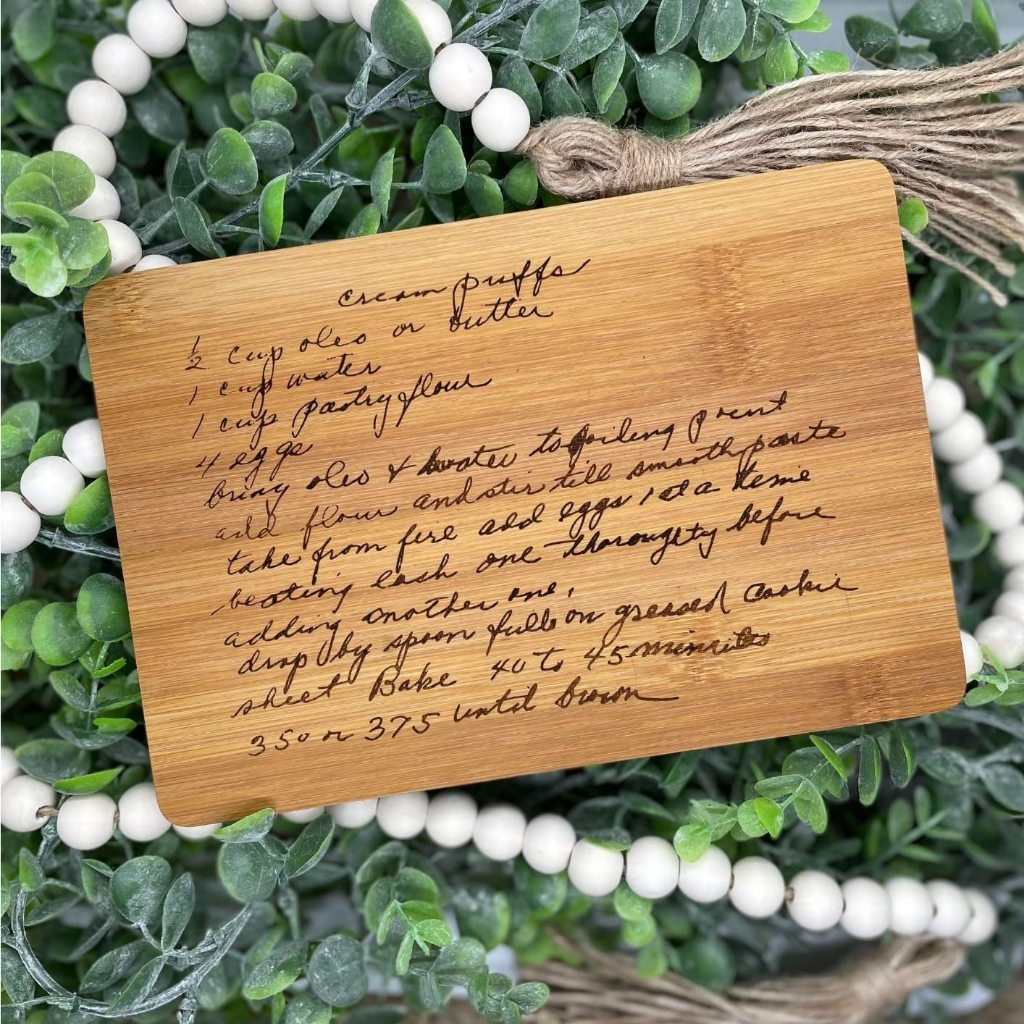 cream puffs
½ cup oleo or butter
1 cup water
1 cup pastry flour
4 eggs
bring oleo & water to boiling point
add flour and stir till smooth paste
take from fire add eggs 1 at a time
beating each one thoroughty before
adding another one,
drop by spoon full on greased cookie
sheet Bake 40 to 45 minutes
350 or 375 until brown